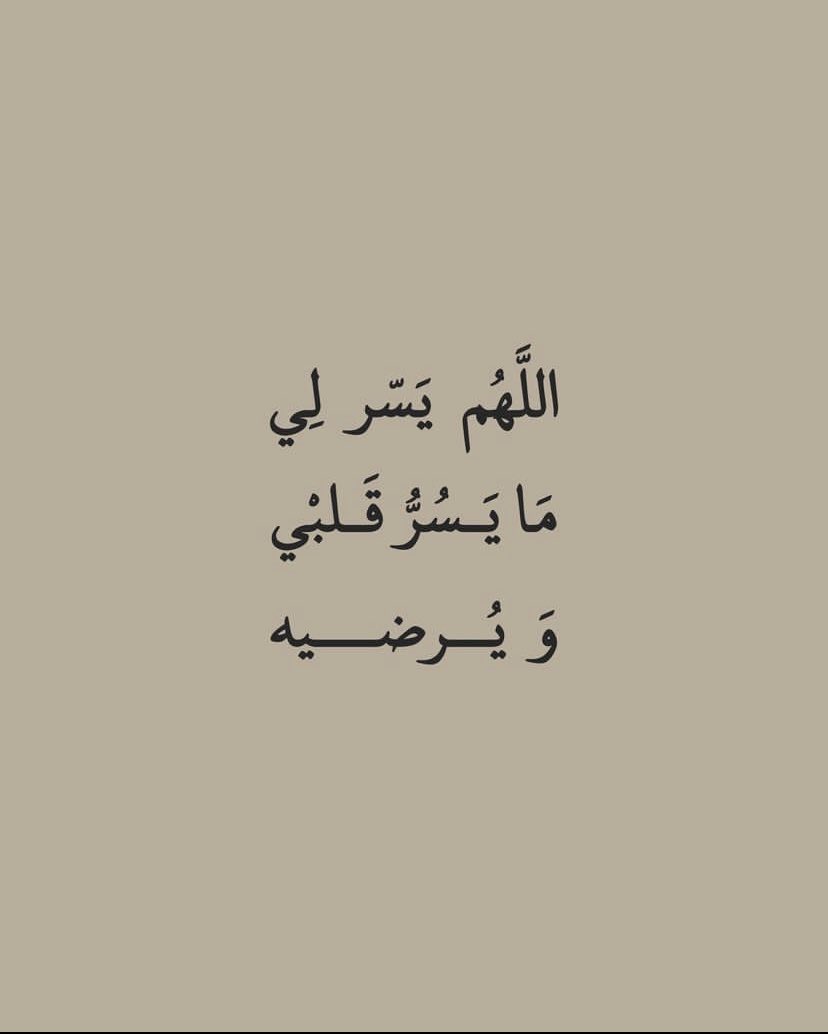 اللَّهُم يَسّر لِي
مَا يَـسُرُّ قَـلبْي
وَ يُـرضـيه